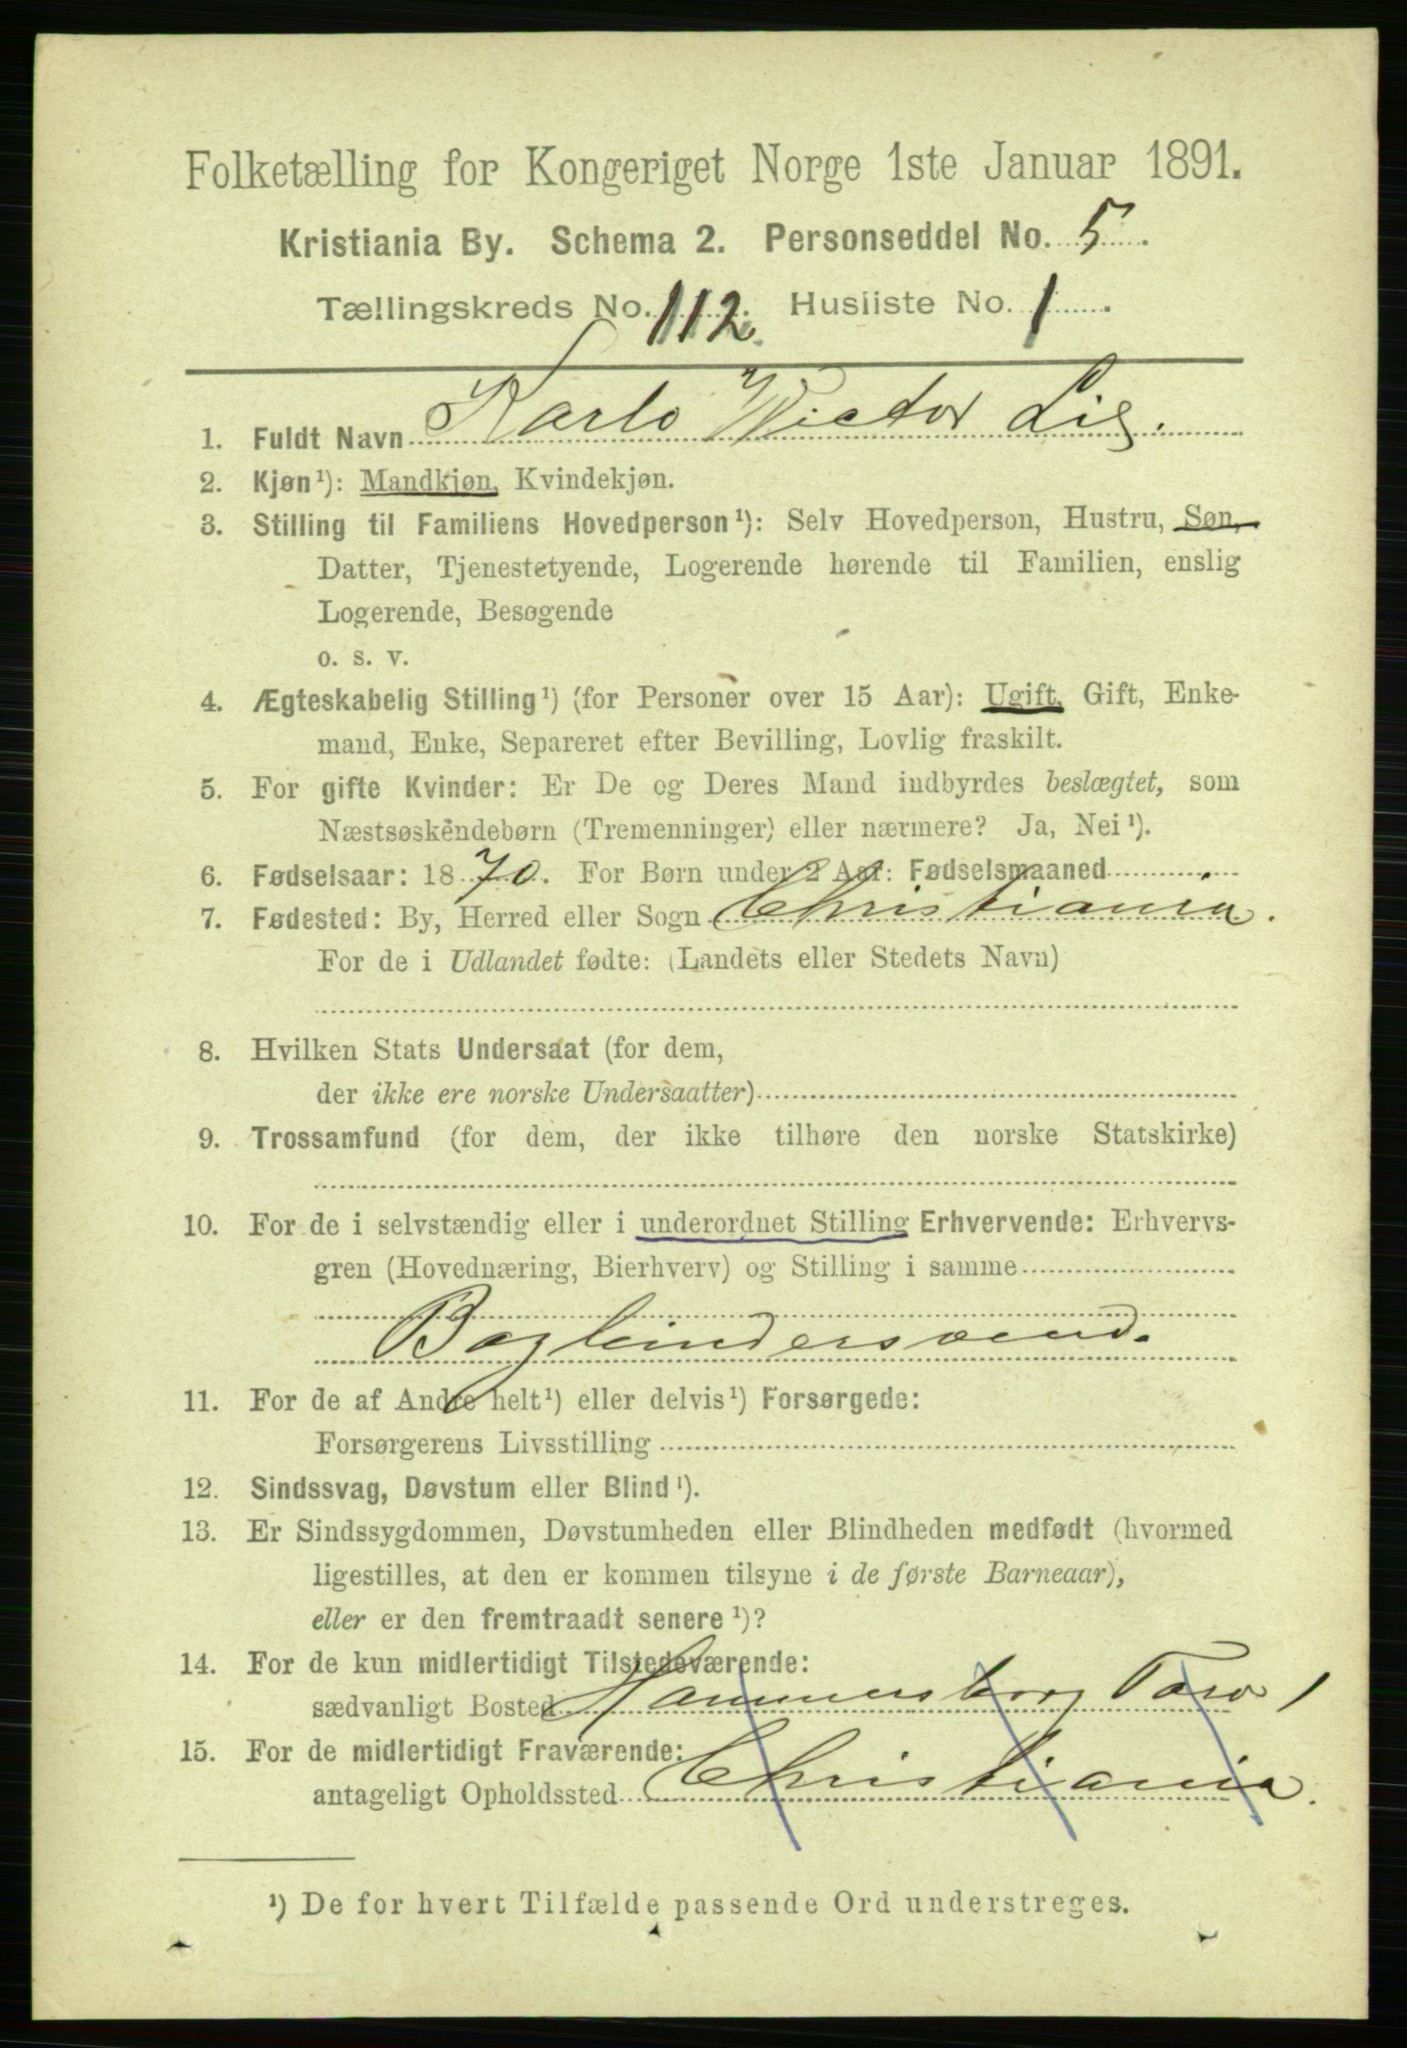 Folketælling for Kongeriget Norge 1ste Januar 1891.
Kristiania By. Schema 2. Personseddel No. 5.
Tællingskreds No. 112. Husliste No. 1.
1. Fuldt Navn Karlo Victor Lie.
2. Kjøn¹): Mandkjøn, Kvindekjøn.
3. Stilling til Familiens Hovedperson¹): Selv Hovedperson, Hustru, Søn,
Datter, Tjenestetyende, Logerende hørende til Familien, enslig
Logerende, Besøgende
o. s. v.
4. Ægteskabelig Stilling¹) (for Personer over 15 Aar): Ugift, Gift, Enke-
mand, Enke, Separeret efter Bevilling, Lovlig fraskilt.
5. For gifte Kvinder: Er De og Deres Mand indbyrdes beslægtet, som
Næstsøskendebørn (Tremenninger) eller nærmere? Ja, Nei¹).
6. Fødselsaar: 1870. For Børn under 2 Aar: Fødselsmaaned
7. Fødested: By, Herred eller Sogn Christiania.
For de i Udlandet fødte: (Landets eller Stedets Navn)
8. Hvilken Stats Undersaat (for dem,
der ikke ere norske Undersaatter)
9. Trossamfund (for dem, der ikke tilhøre den norske Statskirke)
10. For de i selvstændig eller i underordnet Stilling Erhvervende: Erhvervs-
gren (Hovednæring, Bierhverv) og Stilling i samme
Bogbindersvend.
11. For de af Andre helt¹) eller delvis¹) Forsørgede:
Forsørgerens Livsstilling
12. Sindssvag, Døvstum eller Blind¹).
13. Er Sindssygdommen, Døvstumheden eller Blindheden medfødt (hvormed
ligestilles, at den er kommen tilsyne i de første Barneaar),
eller er den fremtraadt senere¹)?
14. For de kun midlertidigt Tilstedeværende:
sædvanligt Bosted Hammersborg Torv 1
15. For de midlertidigt Fraværende:
antageligt Opholdssted Christiania.
¹) De for hvert Tilfælde passende Ord understreges.